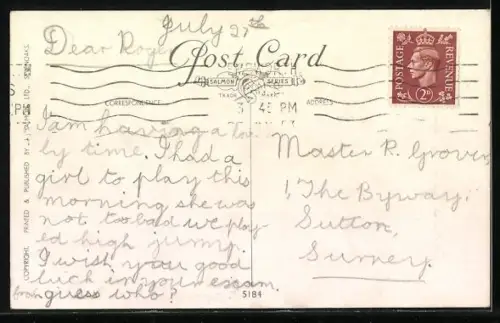 July 27th
Dear Roger
Post Card
SALMON SERIES
TRADE MARK
CORRESPONDENCE
ADDRESS
3 45 PM
POSTAGE REVENUE
2D
I am having a lov
ly time. I had a
girl to play this
morning she was
not too bad we play
ed high jump.
I wish you good
luck in your exam.
from guess who?
Master R. Grover
1, The Byway,
Sutton,
Surrey.
5184
COPYRIGHT. PRINTED & PUBLISHED BY J. SALMON LTD. SEVENOAKS.